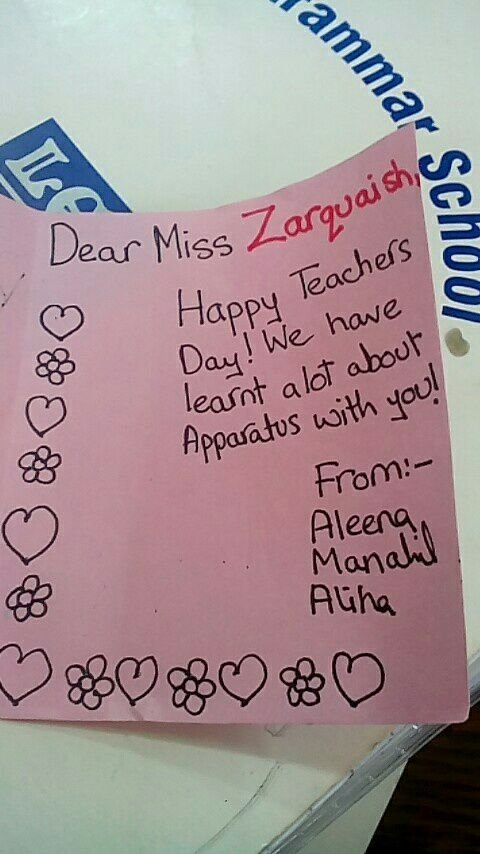 Grammar School
Le
Dear Miss Zarquaish,
Happy Teachers
Day! We have
learnt a lot about
Apparatus with you!
From:-
Aleena
Manahil
Aliha